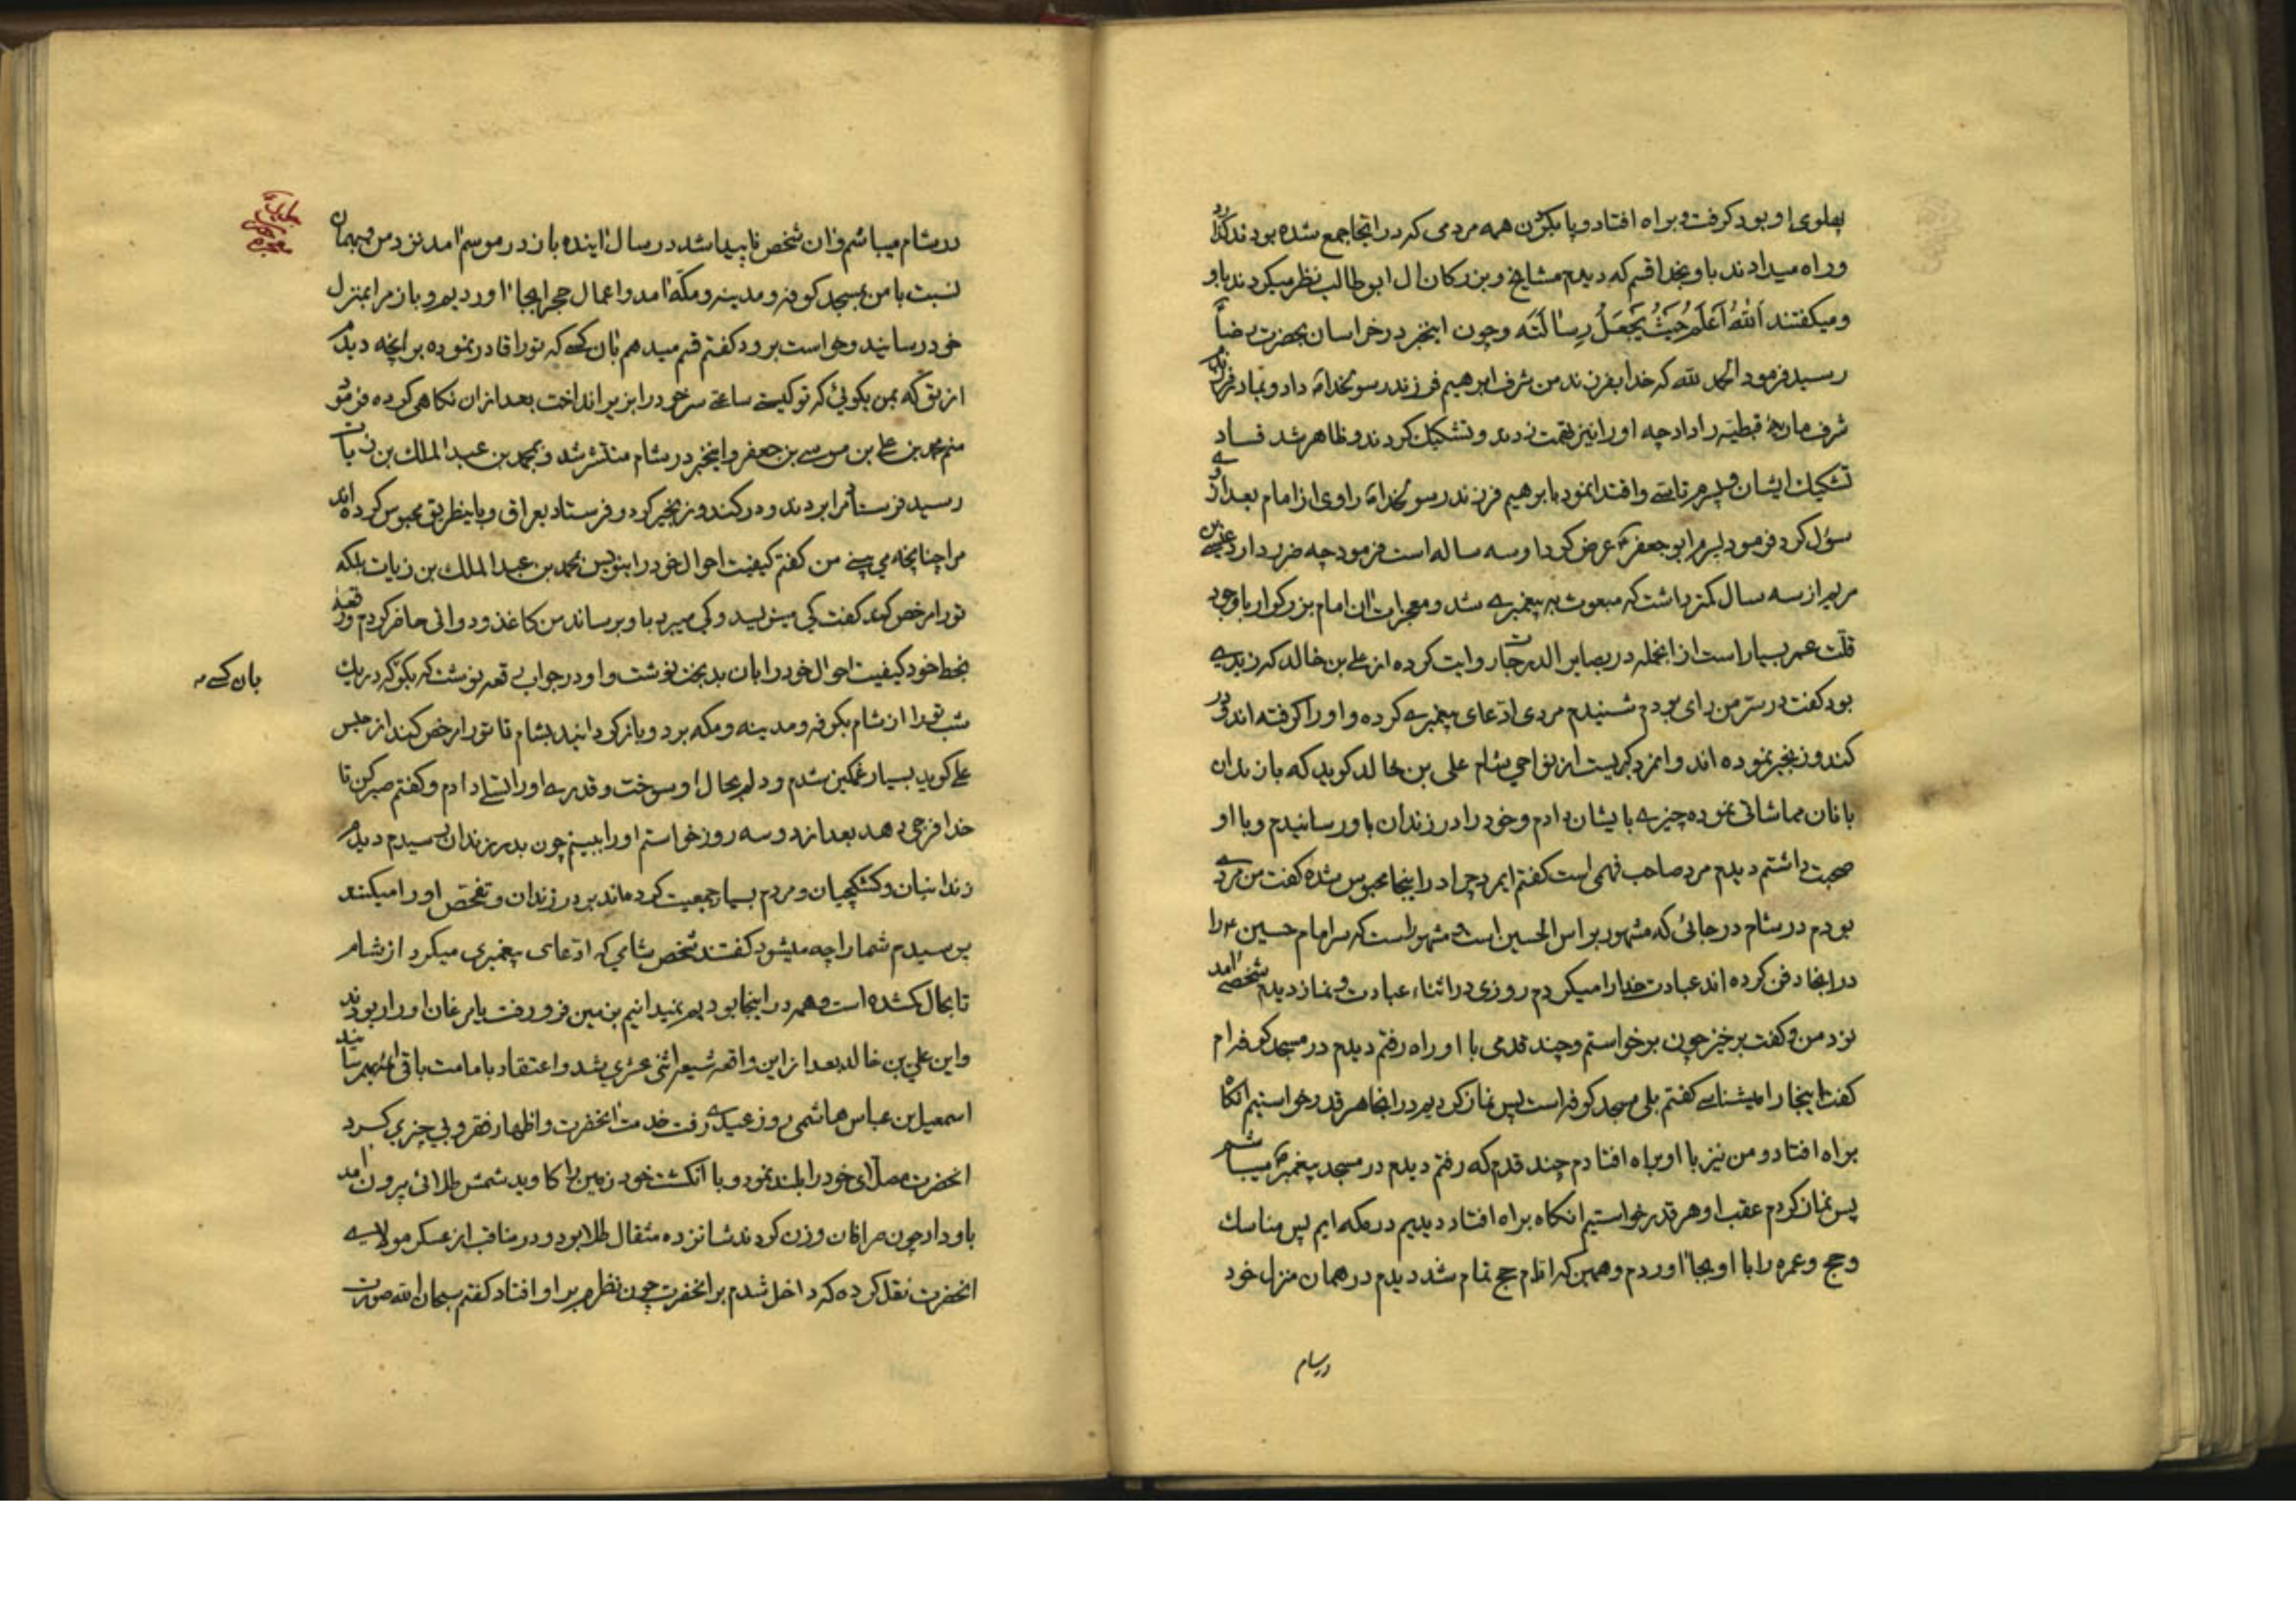 پهلوی او بود کرفت و براه افتاد و پا بکردن همه مردمی که در انجا جمع شده بودند کذارد
و راه میدادند باو بخدا قسم که دیدم مشایخ و بزرکان ال ابوطالب نظر میکردند باو
و میکفتند اَللّٰهُ اَعْلَمُ حَیْثُ یَجْعَلُ رِسٰالَتَه و چون اینخبر در خراسان بحضرت رضا
رسید فرمود الحمد لله که خدا بفرزند من شرف ابرهیم فرزند رسولخدا داد و بمادر فرزندم
شرف ماریهٔ قبطیّه را داد چه او را نیز تهمت زدند و تشکیک کردند و ظاهر شد فساد
تشکیک ایشان و پسرم تاسی و اقتدا نمود بابرهیم فرزند رسولخدا راوی از امام بعد از او
سؤل کرد فرمود پسرم ابو جعفر عرض کرد او سه ساله است فرمود چه ضرر دارد عیسی بن
مریم از سه سال کمتر داشت که مبعوث به پیغمبری شد و معجزات ان امام بزرکوار با وجود
قلّت عمر بسیار است از انجمله در بصایر الدرجات روایت کرده از علی بن خالد که زیدی
بود کفت در سرّ من رای بودم شنیدم مردی ادّعای پیغمبری کرده و او را کرفته اند و در
کند و زنجیر نموده اند و امر دیکریست از نواحی شام علی بن خالد کوید که بازندان
بانان مماشاتی نموده چیزی بایشان دادم و خود را در زندان باو رسانیدم و با او
صحبت داشتم دیدم مرد صاحب فهمی است کفتم ایمرد چرا در اینجا محبوس شدهٔ کفت من مردی
بودم در شام در جائی که مشهور براس الحسین است و مشهور است که سر امام حسین ع را
در انجا دفن کرده اند عبادت خدا را میکردم روزی در اثناء عبادت و نماز دیدم شخصی امد
نزد من و کفت برخیز چون برخواستم و چند قدمی با او راه رفتم دیدم در مسجد کوفه ام
کفت اینجا را میشناسی کفتم بلی مسجد کوفه است پس نماز کردیم در انجا هر قدر خواستیم انکاه
براه افتاد و من نیز با او براه افتادم چند قدم که رفتم دیدم در مسجد پیغمبر میباشم
پس نماز کردم عقب او هر قدر خواستیم انکاه براه افتاد دیدیم در مکه ایم پس مناسک
و حج و عمره را با او بجا اوردم و همین که اعمال حج تمام شد دیدم در همان منزل خود
در شام
در شام میباشم و ان شخص ناپیدا شد در سال اینده باز در موسم امد نزد من و بهمان
نسبت با من بمسجد کوفه و مدینه و مکّه امد و اعمال حج را بجا اوردیم و باز مرا بمنزل
خود رسانید و خواست برود کفتم قسم میدهم بان کسی که تو را قادر نموده بر انچه دیدم
از تو که بمن بکوئی که تو کیستی ساعتی سر خود را بزیر انداخت بعد از ان نکاهی کرده فرمود
منم محمد بن علی بن موسی بن جعفر و اینخبر در شام منتشر شد و بمحمد بن عبد الملک بن زیات
رسید فرستاد مرا بردند و در کند و زنجیر کرد و فرستاد بعراق و باینطریق محبوس کرده اند
مرا چنانچه می بینی من کفتم کیفیت احوال خود را بنویس بمحمد بن عبد الملک بن زیات بلکه
تو را مرخص کند کفت کی مینویسد و کی میبرد باو برساند من کاغذ و دواتی حاضر کردم و رقعهٔ
بخط خود کیفیت احوال خود را بان بدبخت نوشت و او در جواب رقعه نوشت که بکو که در یک
بان کسی
شب تو را از شام بکوفه و مدینه و مکه برد و باز کردانید بشام تا تو را مرخص کند از حبس
علی کوید بسیار غمکین شدم و دلم بحال او سوخت و قدری او را تسلی دادم و کفتم صبر کن تا
خدا فرجی دهد بعد از دو سه روز خواستم او را ببینم چون بدر زندان رسیدم دیدم
زندانبان و کشکچیان و مردم بسیار جمعیت کرده اند بر در زندان و تفحّص او را میکنند
پرسیدم شما را چه میشود کفتند شخص شامی که ادّعای پیغمبری میکرد از شام
تا بحال کشده است و همه در اینجا بودیم نمیدانیم بزمین فرو رفت یا مرغان او را ربودند
و این علی بن خالد بعد از این واقعه شیعهٔ اثنی عشری شد و اعتقاد بامامت باقی ائمه بهم رسانید
اسمعیل بن عباس هاشمی روز عیدی رفت خدمت انحضرت و اظهار فقر و بی چیزی کرد
انحضرت مصلّای خود را بلند نمود و با انکشت خود زمین را کاوید شمش طلائی بیرون امد
باو داد چون صرافان وزن کردند شانزده مثقال طلا بود و در مناقب از عسکر مولای
انحضرت نقل کرده که داخل شدم بر انحضرت چون نظرم بر او افتاد کفتم سبحان الله صورت